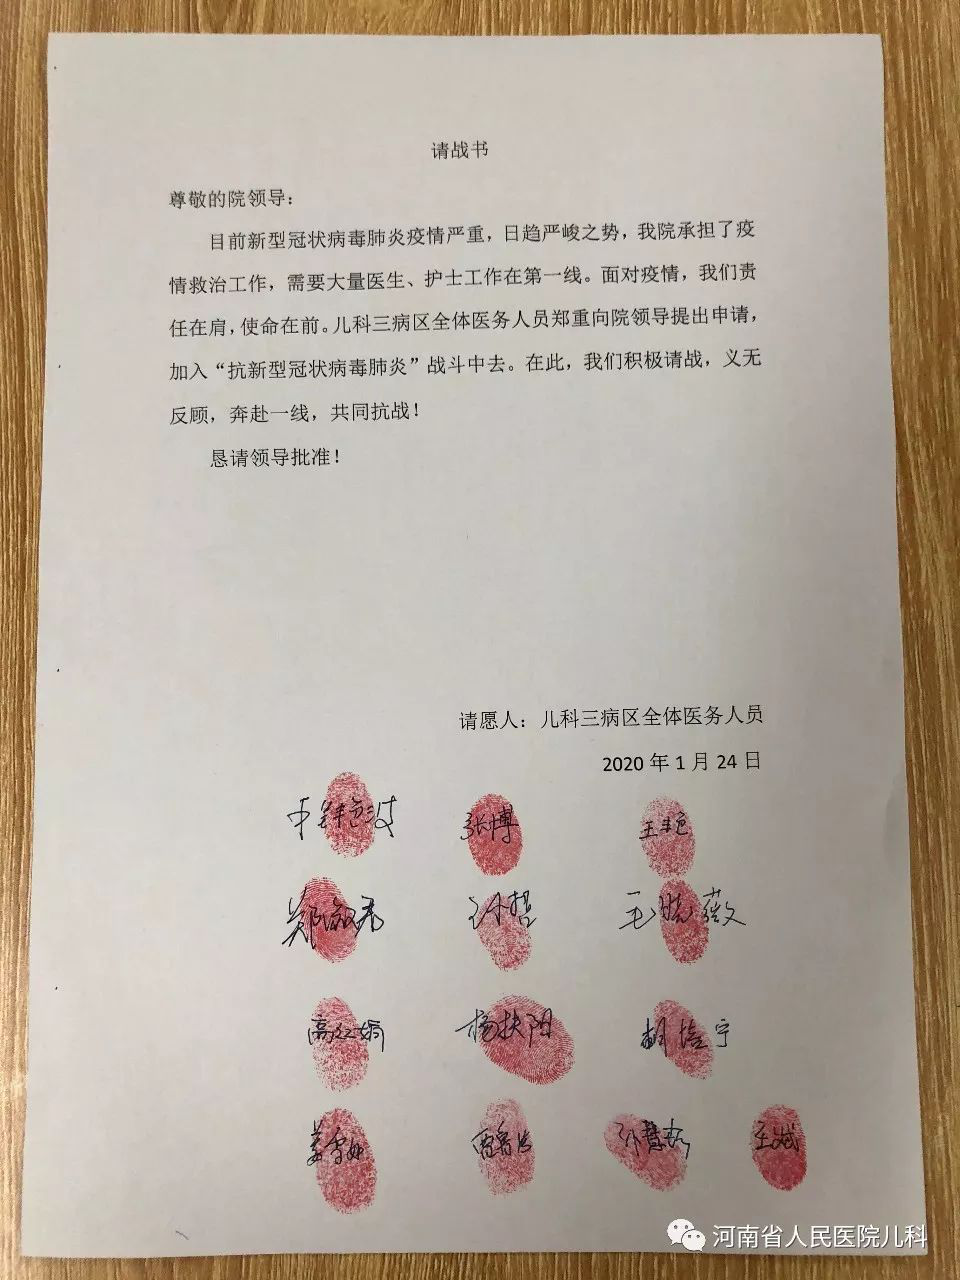 请战书
尊敬的院领导：
目前新型冠状病毒肺炎疫情严重，日趋严峻之势，我院承担了疫
情救治工作，需要大量医生、护士工作在第一线。面对疫情，我们责
任在肩，使命在前。儿科三病区全体医务人员郑重向院领导提出申请，
加入“抗新型冠状病毒肺炎”战斗中去。在此，我们积极请战，义无
反顾，奔赴一线，共同抗战！
恳请领导批准！
请愿人：儿科三病区全体医务人员
2020 年 1 月 24 日
张博 王艳
孙哲 毛晓薇
高红娟 杨扶阳 胡培宁
孙慧杰 王斌
河南省人民医院儿科